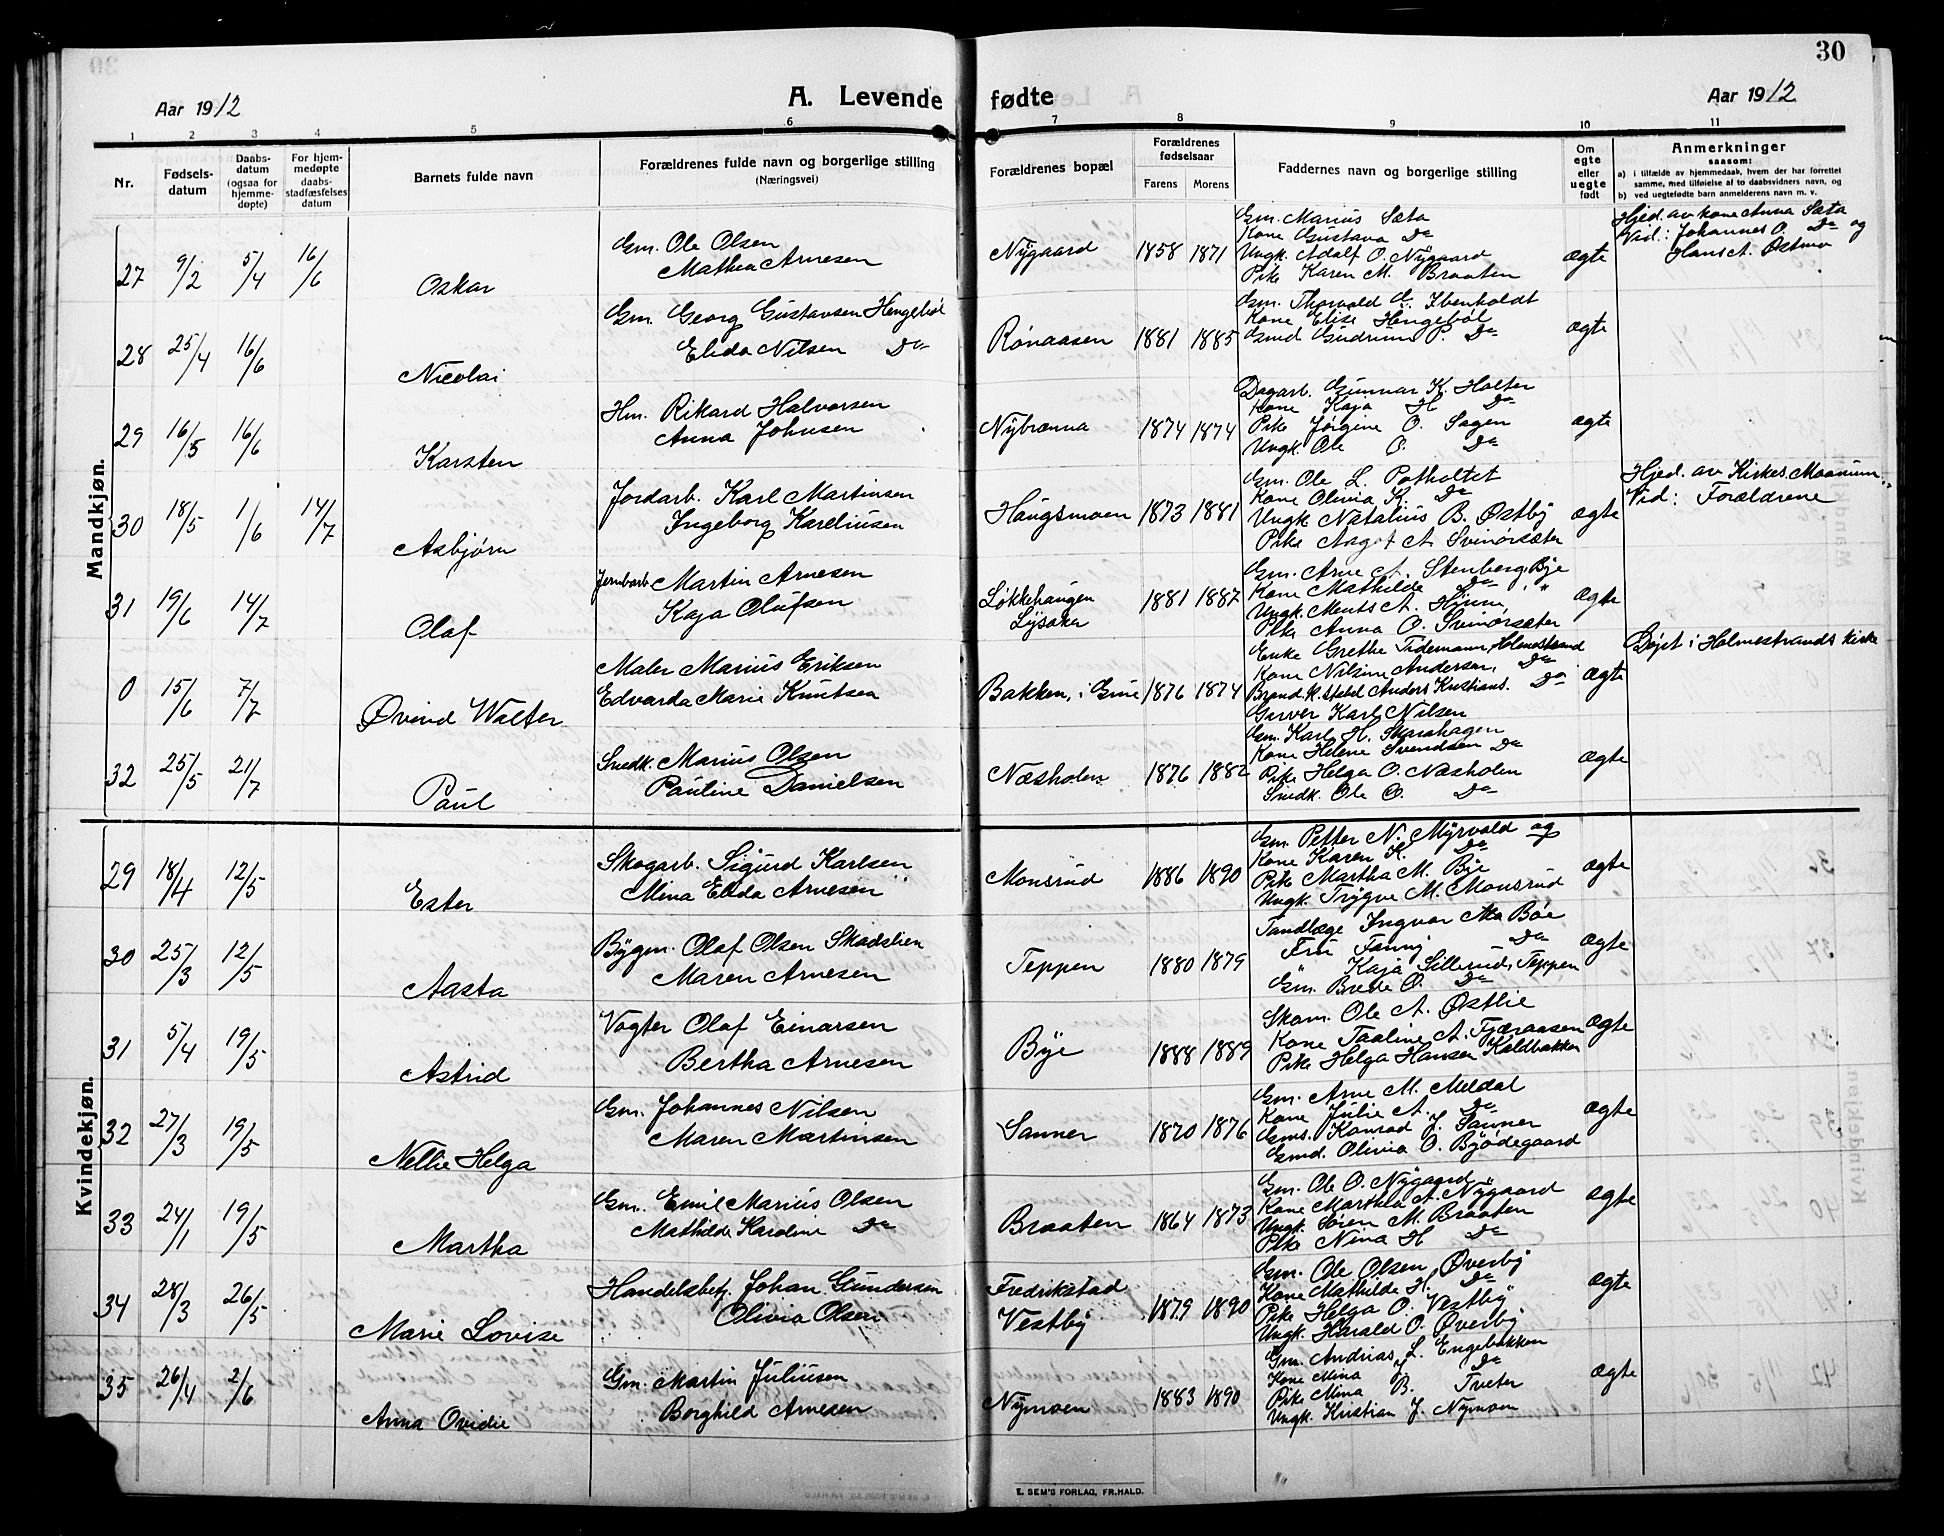 30
Aar 1912
A. Levende fødte
Aar 1912
1 2 3 4 5 6 7 8 9 10 11
Nr.
Fødsels-
datum
Daabs-
datum
(ogsaa for
hjemme-
døpte)
For hjem-
medøpte
daabs-
stadfæstelses
datum
Barnets fulde navn
Forældrenes fulde navn og borgerlige stilling
(Næringsvei)
Forældrenes bopæl
Forældrenes
fødselsaar
Farens Morens
Faddernes navn og borgerlige stilling
Om
egte
eller
uegte
født
Anmerkninger
saasom:
a) i tilfælde av hjemmedaab, hvem der har forrettet
samme, med tilføielse af to daabsvidners navn, og
b) ved uegtefødte barn anmelderens navn m. v.
Mandkjøn.
27 9/2 5/4 16/6 Oskar
Gm. Ole Olsen
Mathea Arnesen
Nygaard 1858 1871
Gm. Marius Sæta
Kone Gustava Do
Ungk. Adolf O. Nygaard
Pike Karen M. Braaten
ægte
Hjed. av kone Anna Sæta
Vid.: Johannes O. Do og
Hans A. Østmo
28 25/4 16/6 Nicolai
Gm. Georg Gustavsen Hengebøl
Elida Nilsen Do
Rønaasen 1881 1885
Gm. Thorvald E. Ibenholdt
Kone Elise Hengebøl
Gmd. Gudrun P. Do
ægte
29 16/5 16/6 Karsten
Hm. Rikard Halvorsen
Anna Johnsen
Nybrænna 1874 1874
Dagarb. Gunnar K. Holter
Kone Kaja H Do
Pike Jørgine O. Sagen
Ungk. Ole O. Do
ægte
30 18/5 1/6 14/7 Asbjørn
Jordarb. Karl Martinsen
Ingeborg Kareliusen
Haugsmoen 1873 1881
Gm. Ole L. Potholtet
Kone Olivia K. Do
Ungk Natalius B. Østby
Pike Aagot A. Svinørsæter
ægte
Hjed. av Kirkes. Maanum
Vid: Forældrene
31 19/6 14/7 Olaf
Jernbarb. Martin Arnesen
Kaja Olufsen
Løkkehaugen
Lysaker
1881 1887
Gm. Arne A. Stenberg Bye
Kone Mathilde Do "
Ungk. Ments A.
Pike Anna O. Svinørsæter
ægte
0 15/6 7/7 Øvind Walter
Maler Marius Eriksen
Edvarda Marie Knutsen
Bakken, i Grue 1876 1874
Enke Grethe Tidemann, Holmestrand
Kone Nilsine Andersen, Do
Brandk. stabel Anders Kristians. Do
Garver Karl Nilsen
ægte
Døpt i Holmestrands kirke
32 25/5 21/7 Paul
Snedk. Marius Olsen
Pauline Danielsen
Næsholen 1876 1882
Gm. Karl H. Skarahagen
Kone Helene Svendsen Do
Pike Helga O. Næsholen
Snedk. Ole O. Do
ægte
Kvindekjøn.
29 18/4 12/5 Ester
Skogarb. Sigurd Karlsen
Mina Elida Arnesen
Monsrud 1886 1890
Gm. Petter N. Myrvold og
Kone Karen K. Do
Pike Martha M. Bye
Ungk. Trygve M. Monsrud
ægte
30 25/3 12/5 Aasta
Bygm. Olaf Olsen Skadslien
Maren Arnesen
Teppen 1880 1879
Tandlæge Ingvar Bøe
Fru Fanny Do
Kaja Sillerud, Teppen
Gm. Brede O. Do
ægte
31 5/4 19/5 Astrid
Vogter Olaf Einarsen
Bertha Arnesen
Bye 1888 1889
Skom. Ole A. Østlie
Kone Taaline A. Fjæraasen
Pike Helga Hansen Kaldbakken
ægte
32 27/3 19/5 Nellie Helga
Gm. Johannes Nilsen
Maren Martinsen
Sanner 1870 1876
Gm. Arne M. Meldal
Kone Julie A. Do
Gms. Konrad J. Sanner
Gmd. Olivia O. Bjødegaard
ægte
33 24/1 19/5 Martha
Gm. Emil Marius Olsen
Mathilde Karoline Do
Braaten 1864 1873
Gm. Ole O. Nygaard
Kone Marthea A. Nygaard
Ungk. Søren M. Braaten
Pike Nina H Do
ægte
34 28/3 26/5 Marie Lovise
Handelsbetj. Johan Gundersen
Olivia Olsen
Fredrikstad
Vestby
1879 1890
Gm. Ole Olsen Øverby
Kone Mathilde H. Do
Pike Helga O. Vestby
Ungk. Harald O. Øverby
ægte
35 26/4 2/6 Anna Ovidie
Gm. Martin Juliusen
Borghild Arnesen
Nymoen 1883 1890
Gm. Andrias L. Engebakken
Kone Mina J Do
Pike Mina B. Tveter
Ungk. Kristian J. Nymoen
ægte
E. SEM'S FORLAG, FR.HALD.